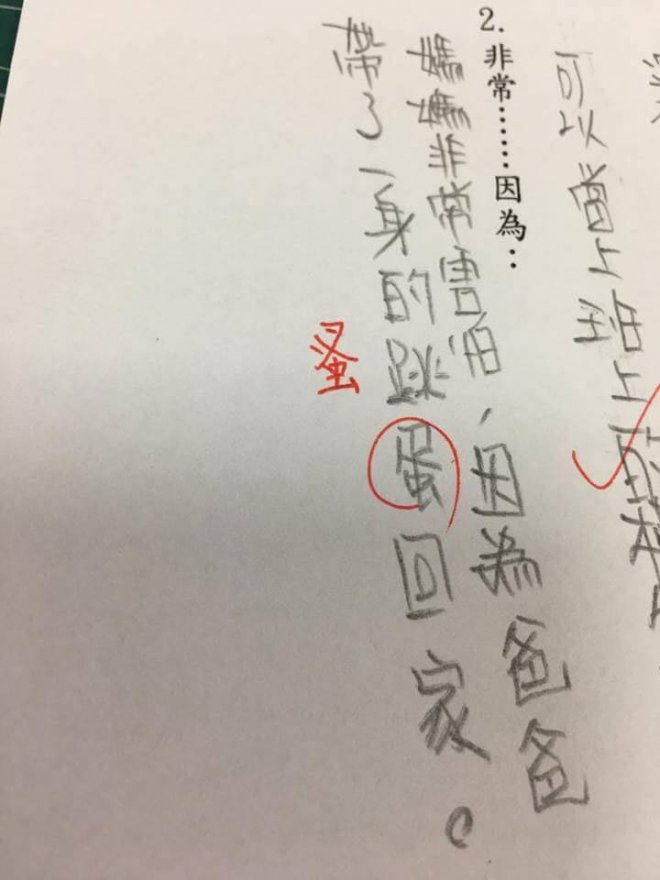 可以當上班上
2. 非常……因為：
媽媽非常害怕，因為爸爸
帶了一身的跳蛋回家。
蚤